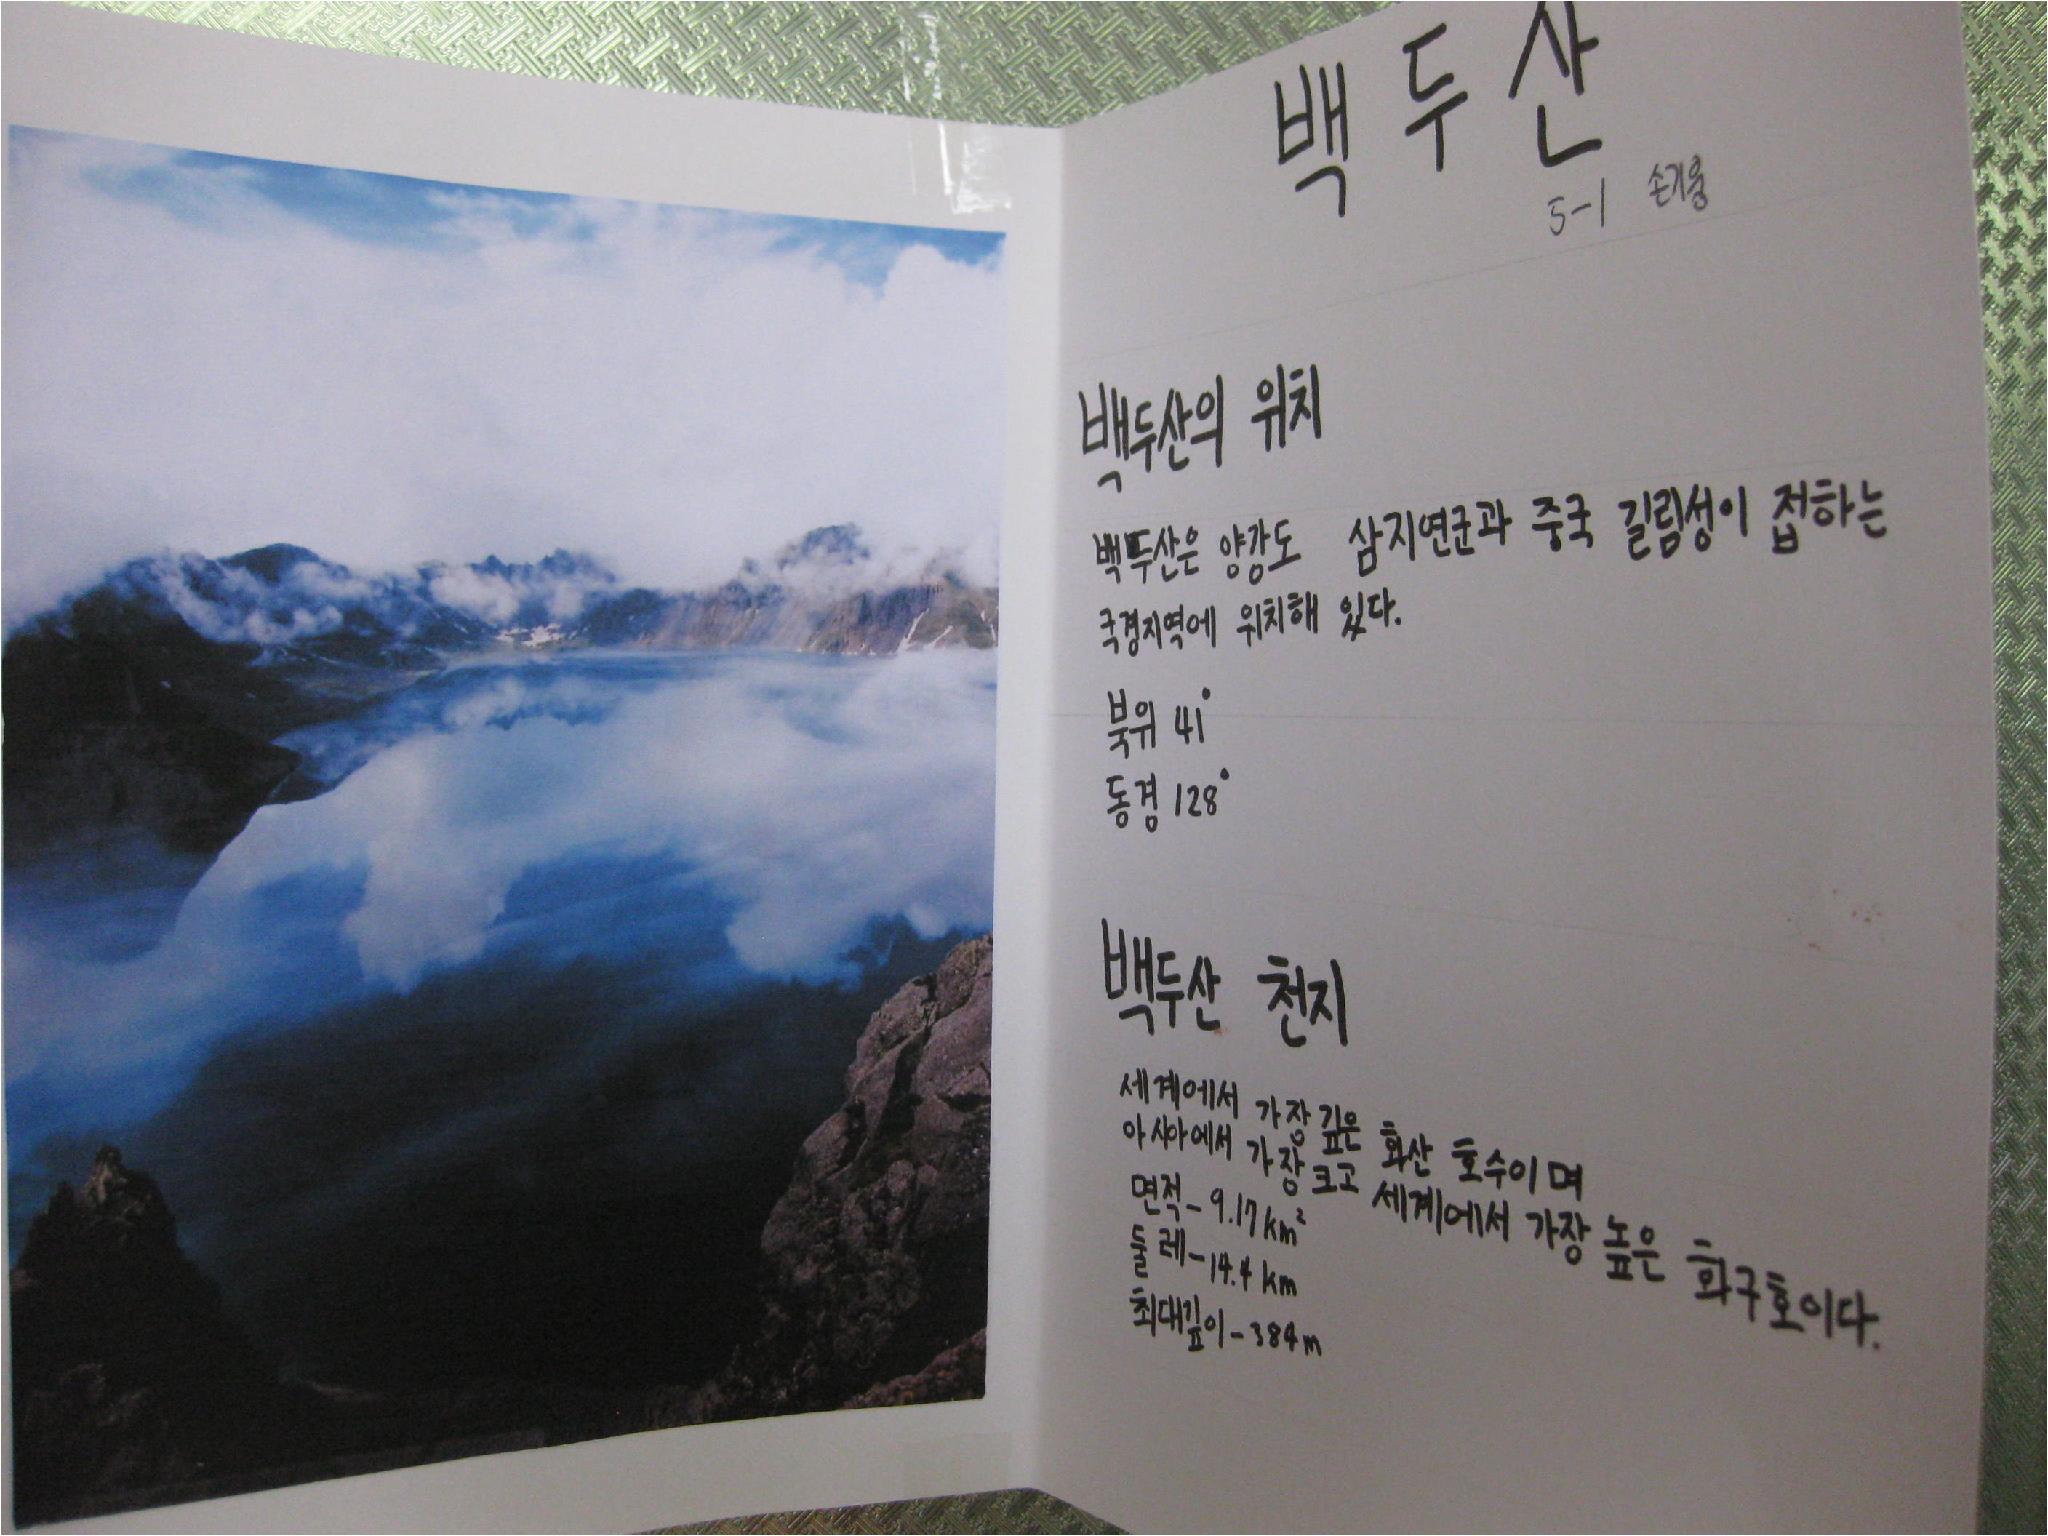 백두산
5-1 손기웅
백두산의 위치
백두산은 양강도 삼지연군과 중국 길림성이 접하는
국경지역에 위치해 있다.
북위 41°
동경 128°
백두산 천지
세계에서 가장 깊은 화산 호수이며
아시아에서 가장 크고 세계에서 가장 높은 화구호이다.
면적-9.17km²
둘레-14.4km
최대깊이-384m